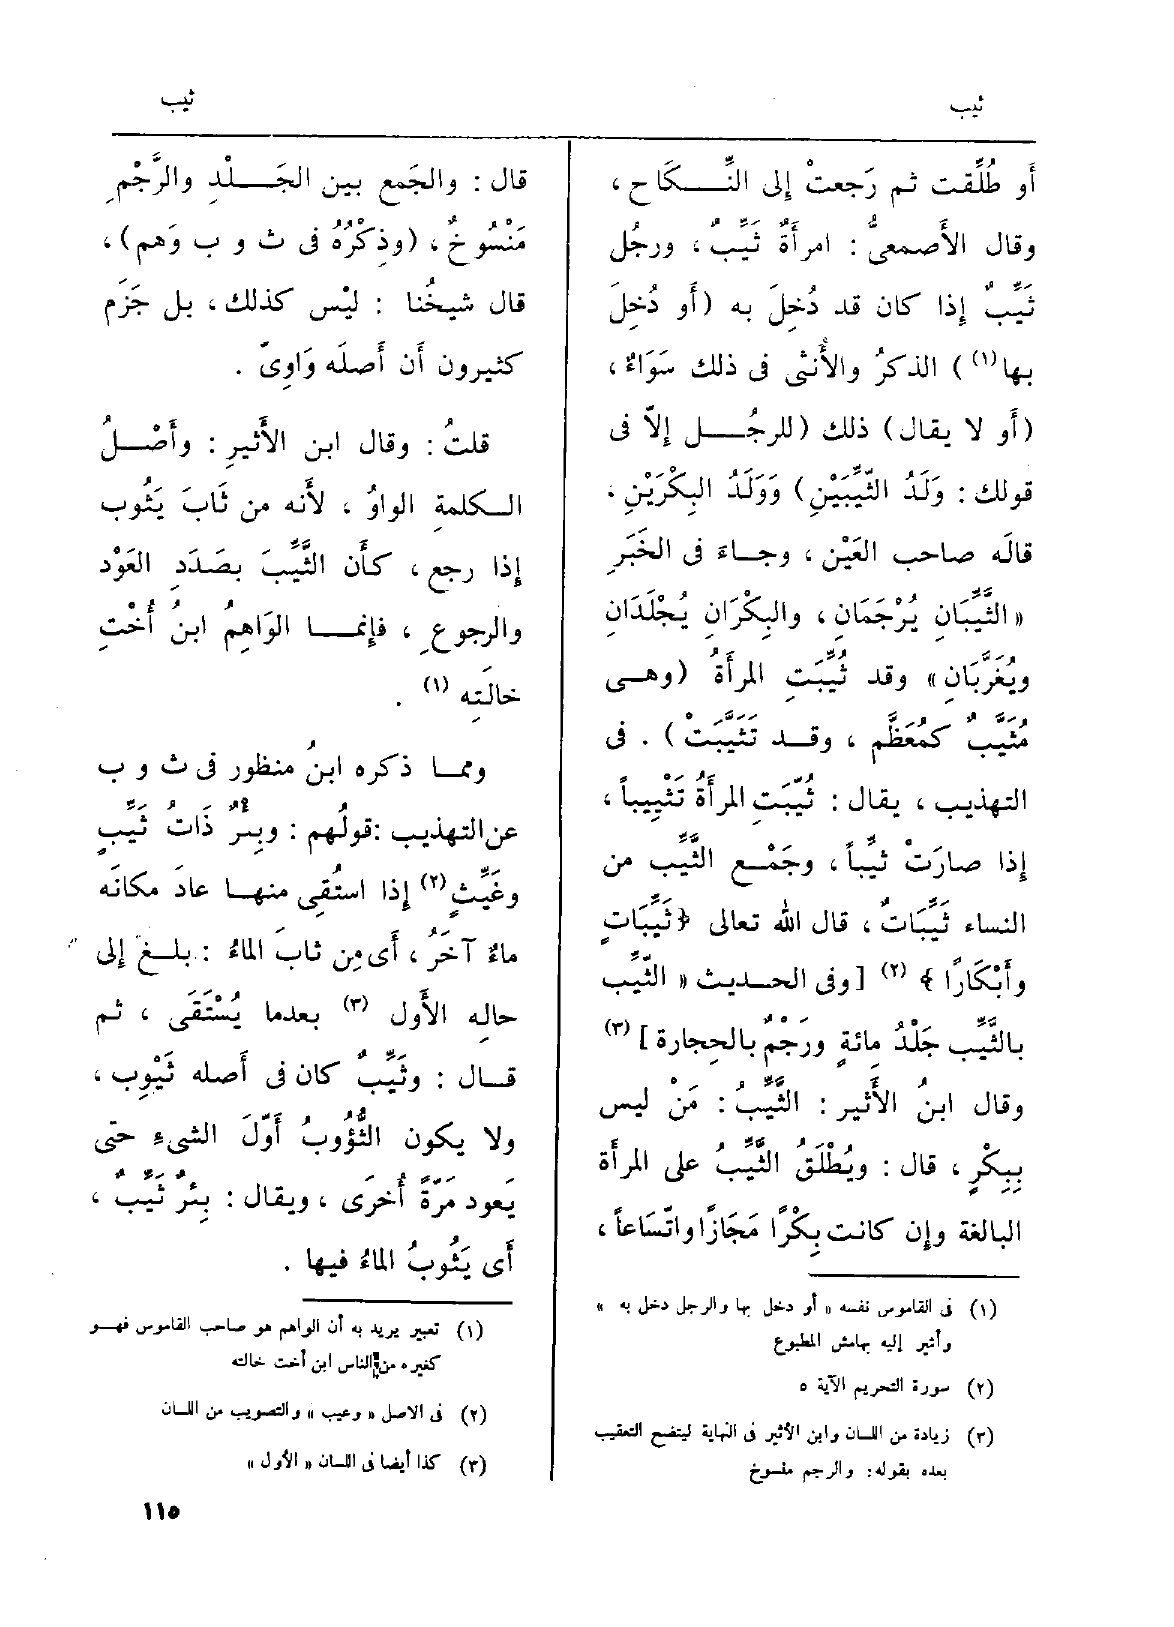 ثيب
ثيب
أَو طُلِّقت ثم رَجعتْ إلى النِّكَاح ،
وقال الأَصمعىُّ : امرأَةٌ ثَيِّبٌ ، ورجُل
ثَيِّبٌ إذا كان قد دُخِلَ به (أَو دُخِلَ
بها(١)) الذكرُ والأُنثى فى ذلك سَوَاءٌ ،
(أَو لا يقال) ذلك (للرجُل إلاّ فى
قولك : وَلَدُ الثَّيِّبَيْنِ) وَوَلَدُ البِكْرَيْنِ .
قالَه صاحب العَيْن ، وجاءَ فى الخَبَرِ
« الثَّيِّبَانِ يُرْجَمَانِ ، والبِكْرَانِ يُجْلَدَانِ
ويُغَرَّبَانِ » وقد ثُيِّبَتِ المرأَةُ (وهى
مُثَيَّبٌ كمُعَظَّم ، وقد تَثَيَّبَتْ) . فى
التهذيب ، يقال : ثُيّبَتِ المرأَةُ تَثْيِيباً ،
إذا صارَتْ ثيِّباً ، وجَمْع الثَّيِّب من
النساء ثَيِّبَاتٌ ، قال الله تعالى ﴿ثَيِّبَاتٍ
وأَبْكَارًا﴾ (٢) [وفى الحديث « الثَّيِّب
بالثَّيِّب جَلْدُ مائةٍ ورَجْمٌ بالحِجارة ](٣)
وقال ابنُ الأَثير : الثَّيِّبُ : مَنْ ليس
بِبِكْرٍ ، قال : ويُطْلَقُ الثَّيِّبُ على المرأَة
البالغة وإن كانت بِكْرًا مَجَازًا واتّسَاعاً ،
(١) فى القاموس نفسه « أو دخل بها والرجل دخل به »
وأشير إليه بهامش المطبوع
(٢) سورة التحريم الآية ٥
(٣) زيادة من اللسان وابن الأثير فى النهاية ليتضح التعقيب
بعده بقوله: والرجم منسوخ
قال : والجَمع بين الجَلْدِ والرَّجْمِ
مَنْسُوخٌ ، (وذِكْرُهُ فى ث و ب وَهَم) ،
قال شيخُنا : ليْس كذلك ، بل جَزَم
كثيرون أَن أَصلَه وَاوِىّ .
قلتُ : وقال ابن الأَثيرِ : وأَصْلُ
الكلمةِ الواوُ ، لأَنه من ثَابَ يَثُوب
إذا رجع ، كأَن الثَّيِّبَ بصَدَدِ العَوْد
والرجوعِ ، فإنما الوَاهِمُ ابنُ أُخْتِ
خالَتِه (١) .
ومما ذكره ابنُ منظور فى ث و ب
عن التهذيب :قولُهم : وبِئْرٌ ذَاتُ ثَيِّبٍ
وغَيِّثٍ(٢) إذا استُقِى منها عادَ مكانَه
ماءٌ آخَرُ ، أَى مِن ثابَ الماءُ : بلغ إلى
حالِه الأَول (٣) بعدما يُسْتَقَى ، ثم
قال : وثَيِّبٌ كان فى أَصله ثَيْوِب ،
ولا يكون الثُّؤُوبُ أَوّلَ الشىءِ حتى
يَعود مَرَّةً أُخرَى ، ويقال : بِئْرٌ ثَيِّبٌ ،
أَى يَثُوبُ الماءُ فيها .
(١) تعبير يريد به أن الواهم هو صاحب القاموس فهو
كغيره من الناس ابن أخت خالته
(٢) فى الاصل « وعيب » والتصويب من اللسان
(٣) كذا أيضا فى اللسان « الأول »
١١٥